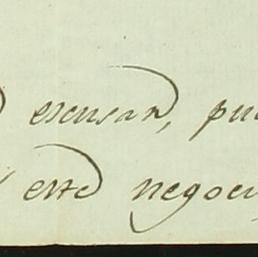 escusan, pu
este negoci